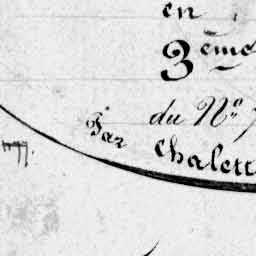 en
3ème
du No 7
Par
Chalett